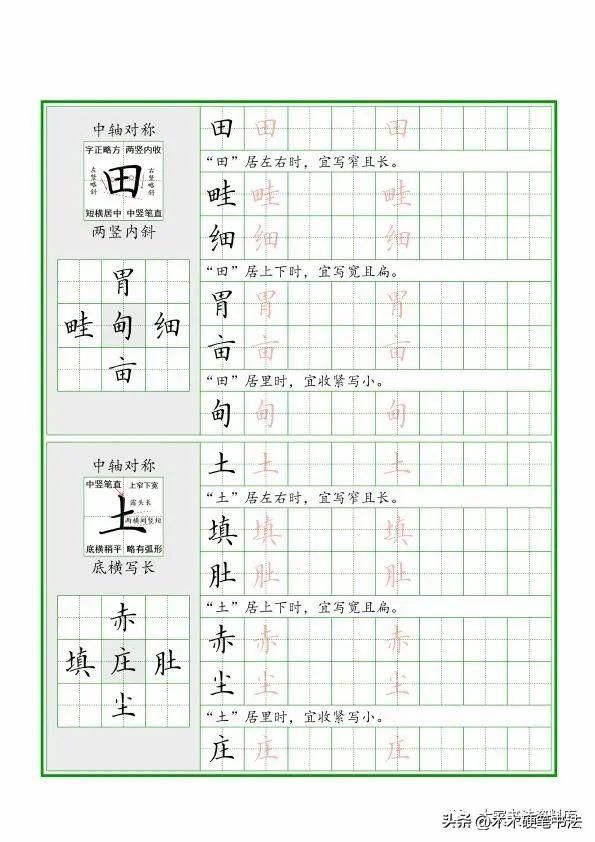 中轴对称
字正略方 两竖内收
左竖略斜
田
右竖略斜
短横居中 中竖笔直
两竖内斜
胃
畦 甸 细
亩
田 田 田
“田”居左右时，宜写窄且长。
畦 畦 畦
细 细 细
“田”居上下时，宜写宽且扁。
胃 胃 胃
亩 亩 亩
“田”居里时，宜收紧写小。
甸 甸 甸
中轴对称
中竖笔直 上窄下宽
露头长
土
两横间竖短
底横稍平 略有弧形
底横写长
赤
填 庄 肚
尘
土 土 土
“土”居左右时，宜写窄且长。
填 填 填
肚 肚 肚
“土”居上下时，宜写宽且扁。
赤 赤 赤
尘 尘 尘
“土”居里时，宜收紧写小。
庄 庄 庄
头条 @木木硬笔书法